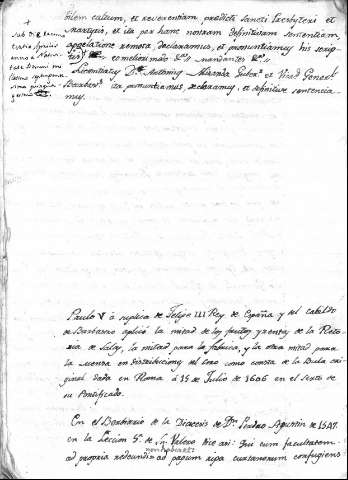 +
sub die decima
tertia Aprilis
anno a Nativi-
tate Domini mi
llesimo
idem cultum, et reverentiam, predicti Sancti Presbyteri et
Martyris, et ita per hanc nostram definitivam sententiam,
appelatione remota, declaramus, et pronuntiamus his scrip-
Licentiatus Dr. Antonius Miranda Guber. et Vicar. General.
Barbasten. ita pronuntiamus, declaramus, et definitive sentencia-
mus.
Paulo V á suplica de Felipe III Rey de España y del cabildo
de Barbastro aplicó la mitad de los frutos y rentas de la Reto-
ria de Salas, la mitad para la fabrica, y la otra mitad para
la mensa en distribuciones del coro como consta de la Bula ori-
ginal dada en Roma á 15 de Julio de 1606 en el sexto de
su Pontificado.
En el Breviario de la Diocesis de Dn. Pedro Agustin de 1547.
en la Leccion 5ª de Sn. Valero dice asi: Qui cum facultatem
ad propria redeundi ad pagum ripa confugiens